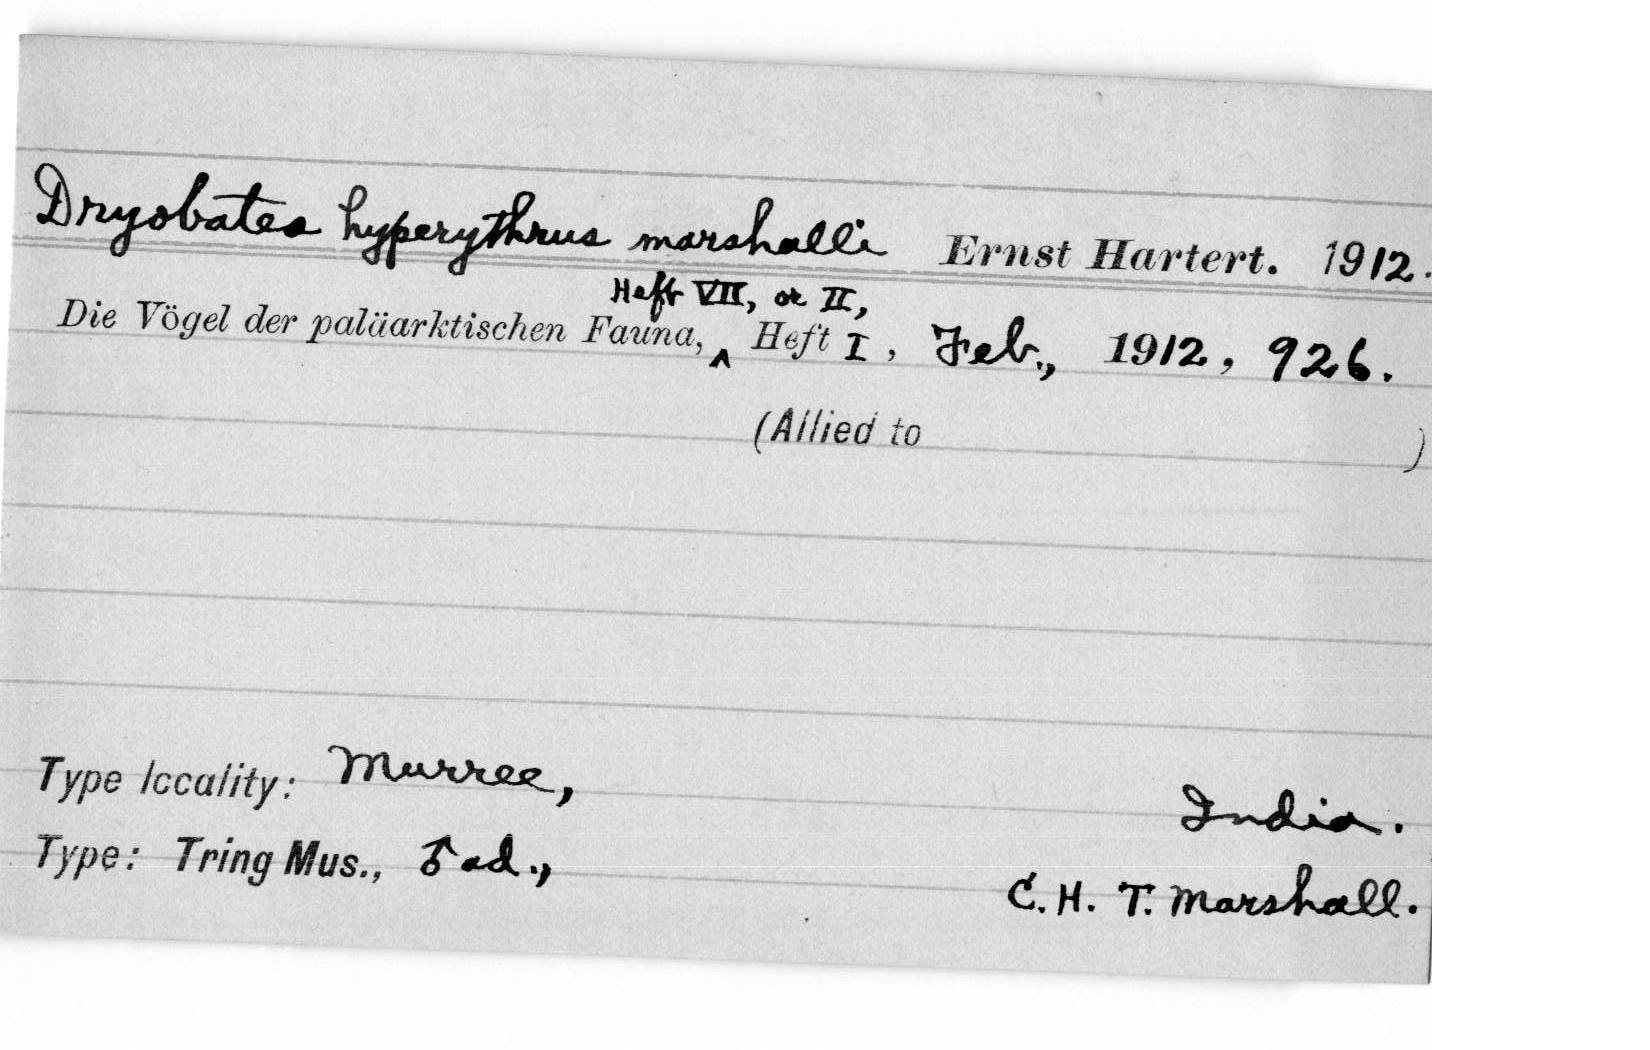 Dryobates hyperythrus marshalli Ernst Hartert. 1912.
Heft VII, or II,
Die Vögel der paläarktischen Fauna, ^ Heft I, Feb., 1912, 926.
(Allied to )
Type lccality: Murree, India.
Type: Tring Mus., ♂ ad., C. H. T. Marshall.